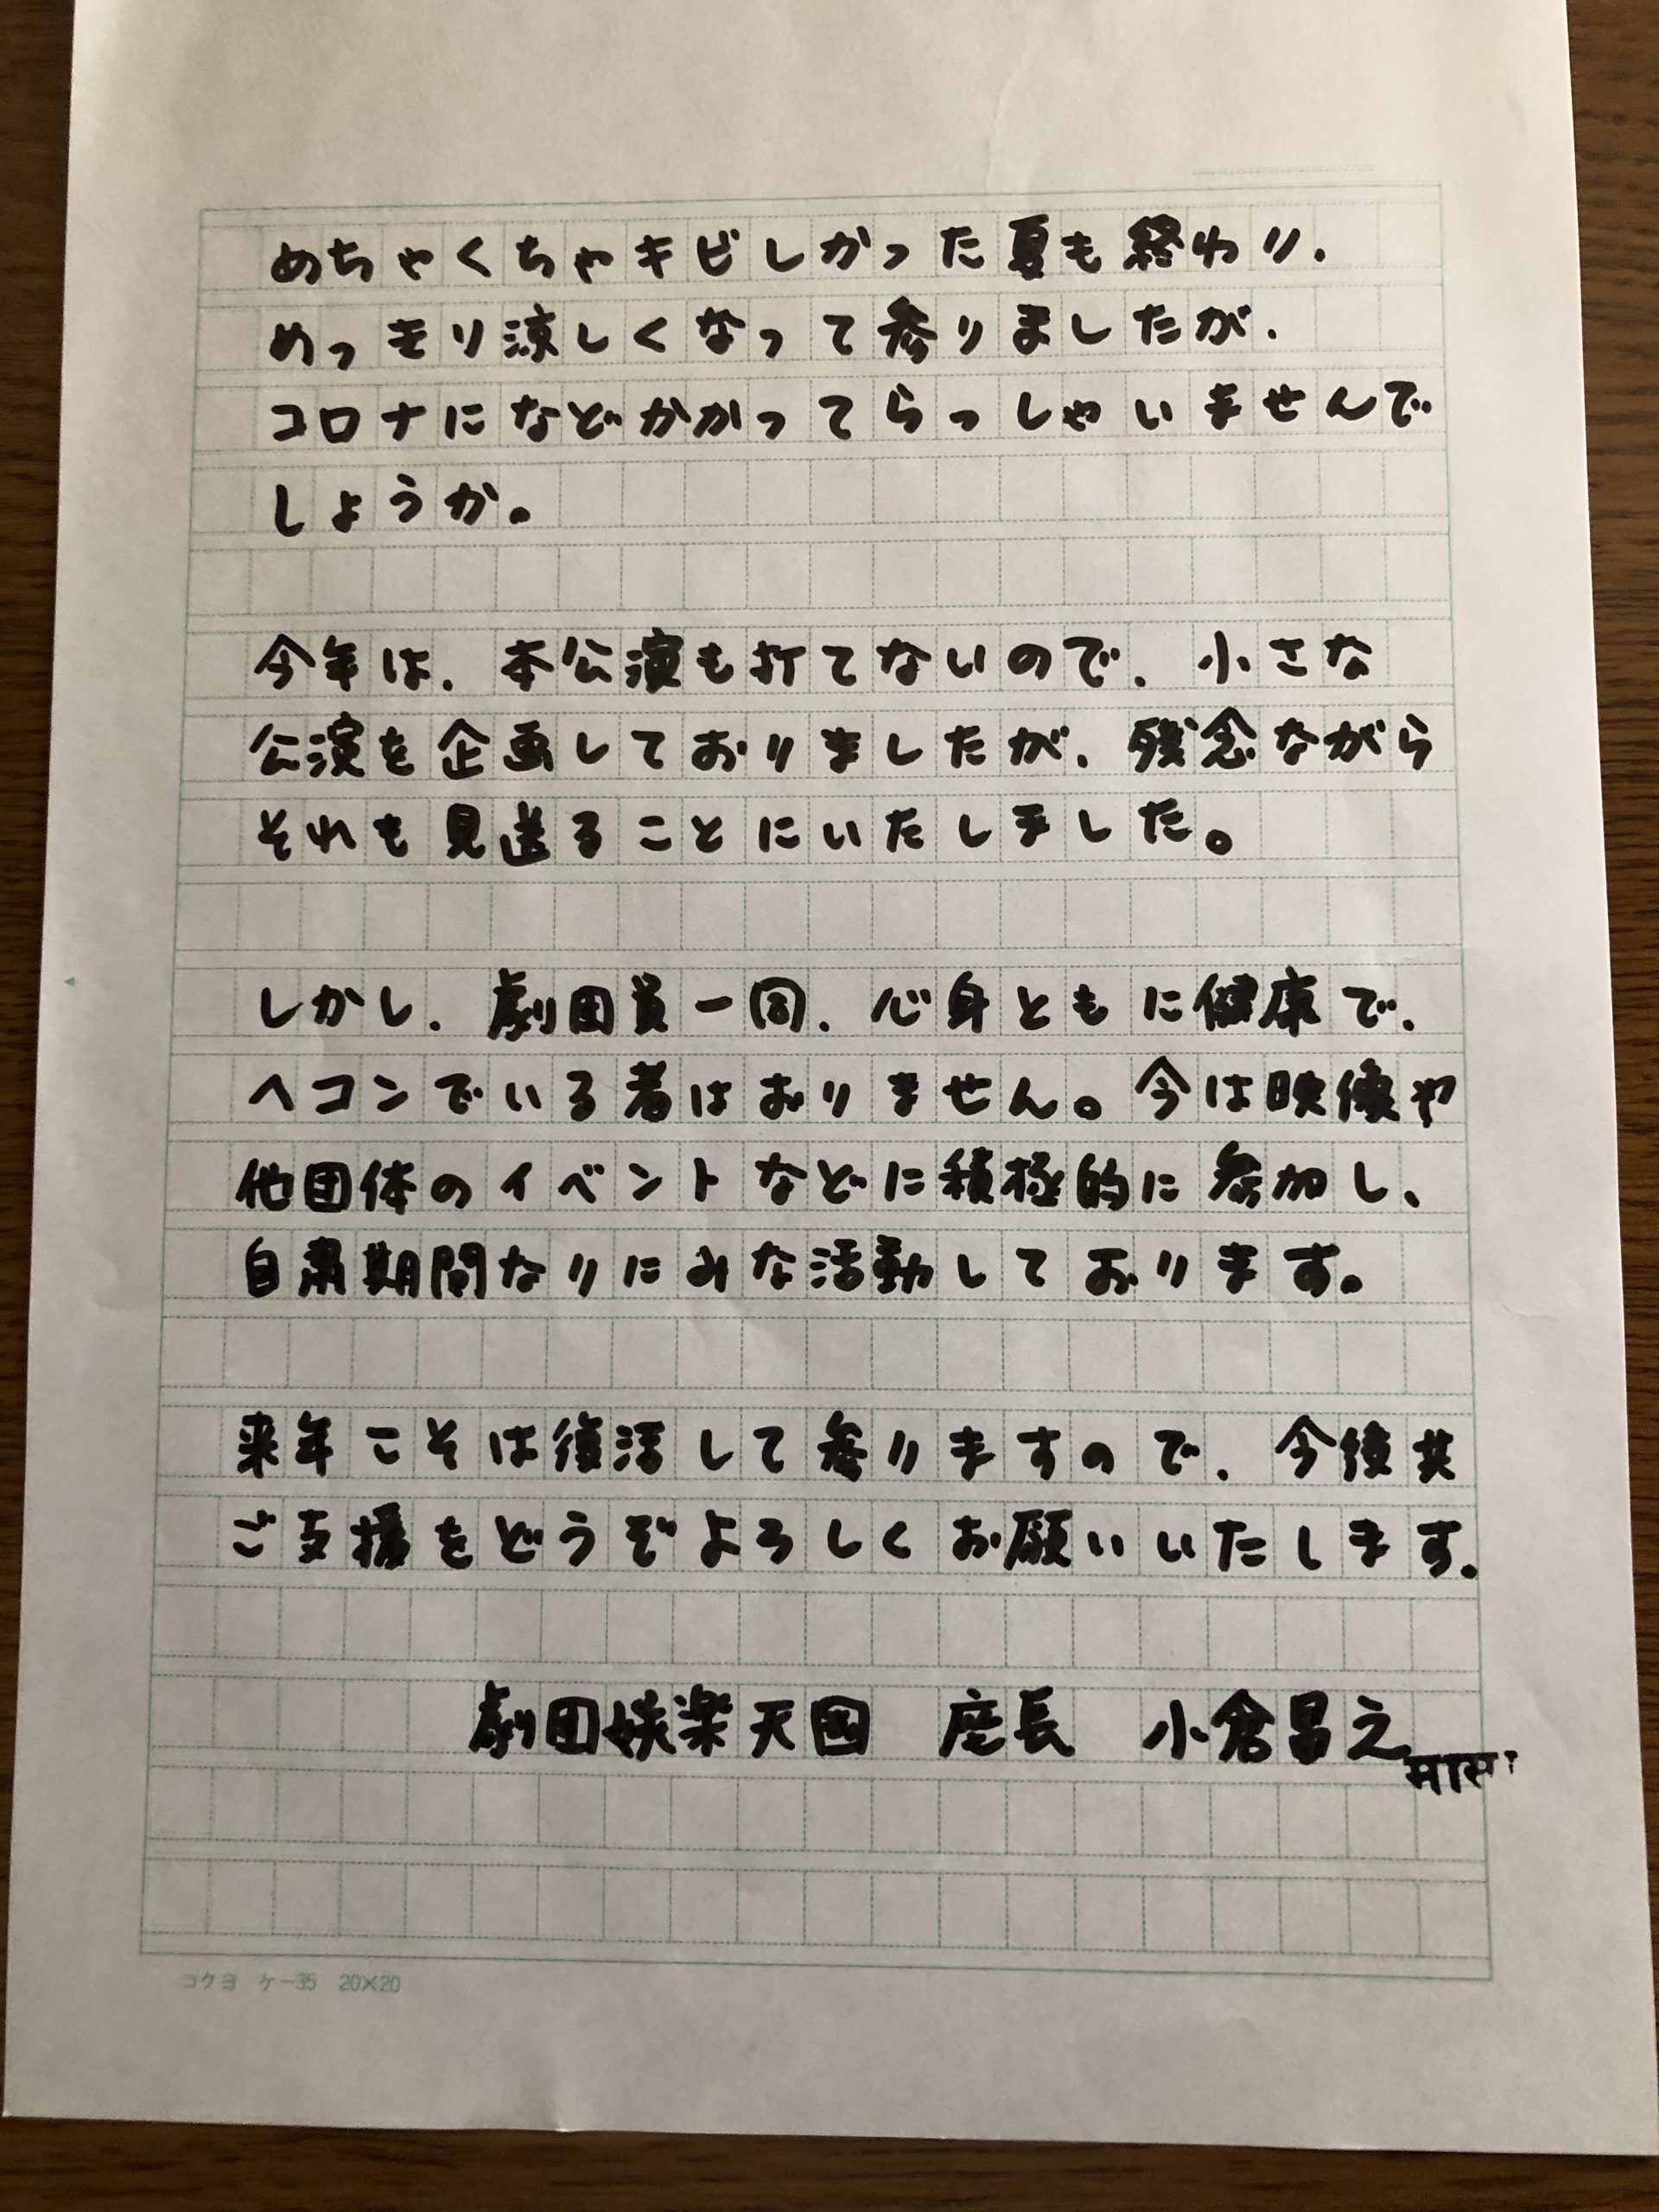 めちゃくちゃキビしかった夏も終わり、
めっきり涼しくなって参りましたが、
コロナになどかかってらっしゃいませんで
しょうか。
今年は、本公演も打てないので、小さな
公演を企画しておりましたが、残念ながら
それも見送ることにいたしました。
しかし、劇団員一同、心身ともに健康で、
ヘコンでいる者はおりません。今は映像や
他団体のイベントなどに積極的に参加し、
自粛期間なりにみな活動しております。
来年こそは復活して参りますので、今後共
ご支援をどうぞよろしくお願いいたします。
劇団娯楽天国 座長 小倉昌之
コクヨ ケー35 20×20